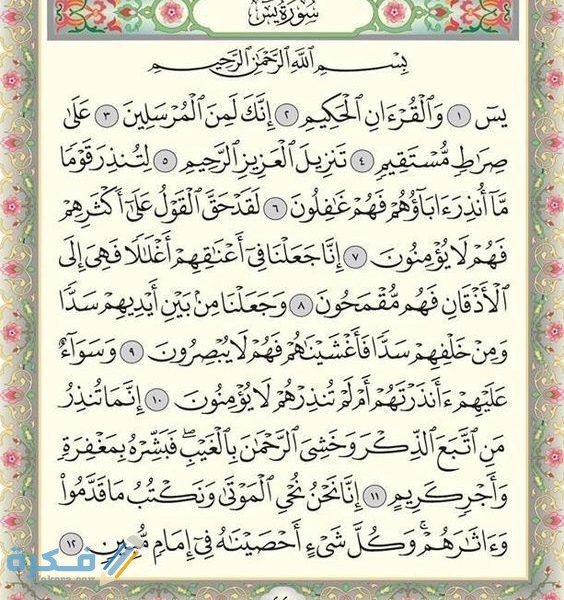 سُورَةُ يسٓ
بِسْمِ ٱللَّهِ ٱلرَّحْمَٰنِ ٱلرَّحِيمِ
يسٓ ١ وَٱلْقُرْءَانِ ٱلْحَكِيمِ ٢ إِنَّكَ لَمِنَ ٱلْمُرْسَلِينَ ٣ عَلَىٰ
صِرَٰطٍ مُّسْتَقِيمٍ ٤ تَنزِيلَ ٱلْعَزِيزِ ٱلرَّحِيمِ ٥ لِتُنذِرَ قَوْمًا
مَّآ أُنذِرَ ءَابَآؤُهُمْ فَهُمْ غَٰفِلُونَ ٦ لَقَدْ حَقَّ ٱلْقَوْلُ عَلَىٰٓ أَكْثَرِهِمْ
فَهُمْ لَا يُؤْمِنُونَ ٧ إِنَّا جَعَلْنَا فِىٓ أَعْنَٰقِهِمْ أَغْلَٰلًا فَهِىَ إِلَى
ٱلْأَذْقَانِ فَهُم مُّقْمَحُونَ ٨ وَجَعَلْنَا مِنۢ بَيْنِ أَيْدِيهِمْ سَدًّا
وَمِنْ خَلْفِهِمْ سَدًّا فَأَغْشَيْنَٰهُمْ فَهُمْ لَا يُبْصِرُونَ ٩ وَسَوَآءٌ
عَلَيْهِمْ ءَأَنذَرْتَهُمْ أَمْ لَمْ تُنذِرْهُمْ لَا يُؤْمِنُونَ ١٠ إِنَّمَا تُنذِرُ
مَنِ ٱتَّبَعَ ٱلذِّكْرَ وَخَشِىَ ٱلرَّحْمَٰنَ بِٱلْغَيْبِ ۖ فَبَشِّرْهُ بِمَغْفِرَةٍ
وَأَجْرٍ كَرِيمٍ ١١ إِنَّا نَحْنُ نُحْىِ ٱلْمَوْتَىٰ وَنَكْتُبُ مَا قَدَّمُوا۟
وَءَاثَٰرَهُمْ ۚ وَكُلَّ شَىْءٍ أَحْصَيْنَٰهُ فِىٓ إِمَامٍ مُّبِينٍ ١٢
فكرة